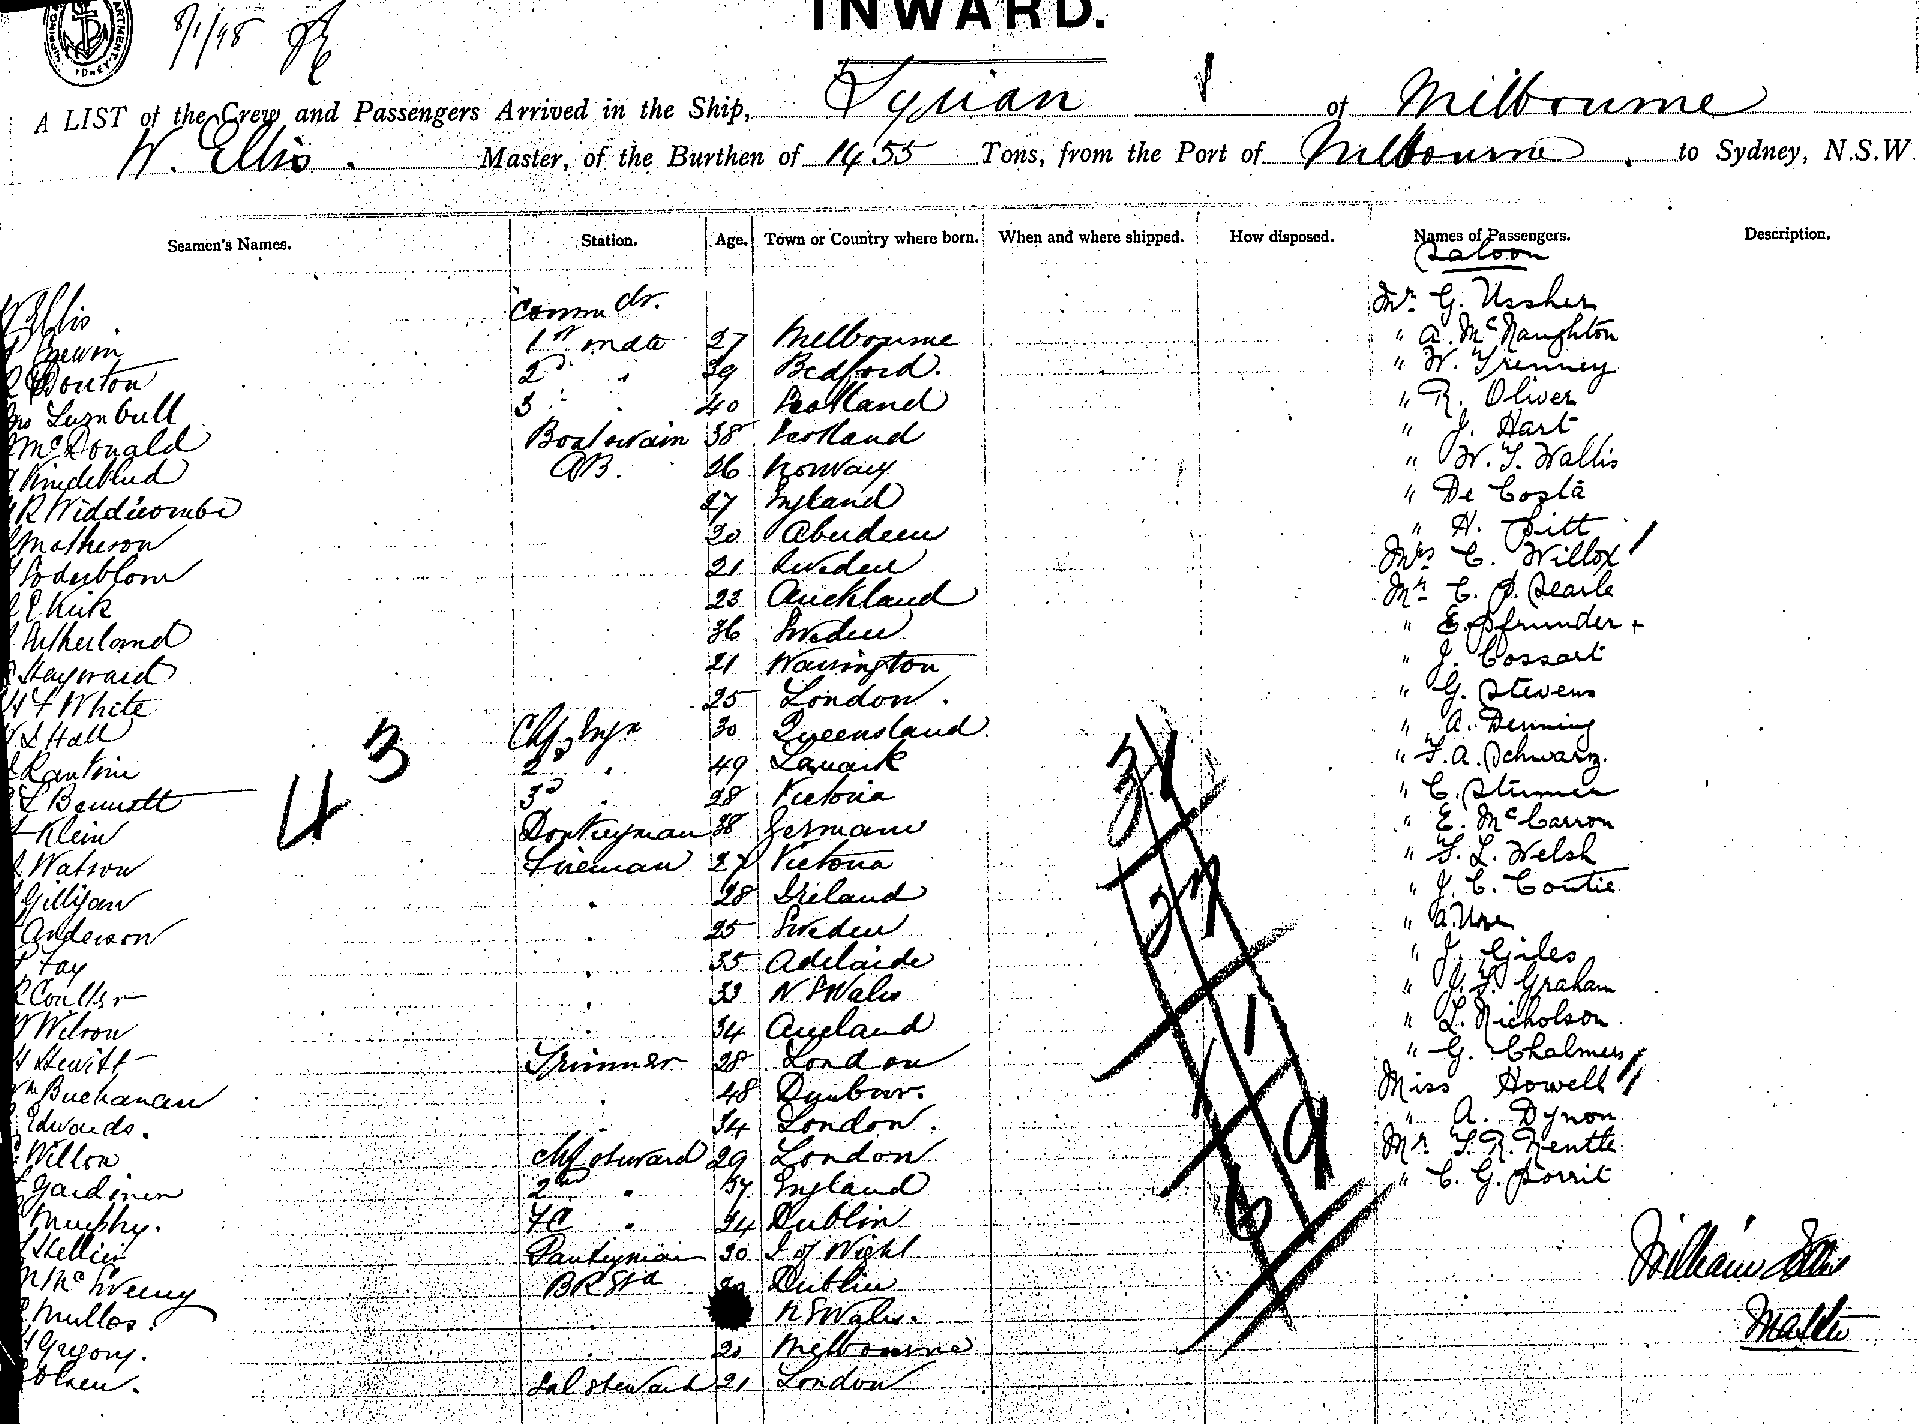 INWARD.
8/1/98
A LIST of the Crew and Passengers Arrived in the Ship, Syrian of Melbourne
W. Ellis. Master, of the Burthen of 1455 Tons, from the Port of Melbourne. to Sydney, N.S.W
Seamen's Names. Station. Age. Town or Country where born. When and where shipped. How disposed. Names of Passengers. Description.
Saloon
Ellis Commdr. Mr. G. Ussher
1st mate 27 Melbourne " A. McNaughton
Bouton 2d " 39 Bedford. " W. Trenney
Turnbull 3 " 40 Scotland " R. Oliver
McDonald Boatswain 38 Scotland " J. Hart
AB. 26 Norway " W. T. Wallis
R Widdicombe 27 England " De Costa
Matheson 20 Aberdeen " H. Pitt
Soderblom 21 Sweden Mrs C. Willox
E Kirk 23 Auckland Mr. C. P. Searle
Sutherland 36 Sweden " E. Pfrunder +
Hayward 21 Warrington " J. Cossart
White 25 London. " G. Stevens
Hall Chf Engr 30 Queensland " A. Denning
Rankine 2d " 49 Lanark " F. A. Schwarz.
L Bennett 3d " 28 Victoria " C. Sturmer
Klein Donkeyman 38 Germany " E. McCarron
Watson Fireman 27 Victoria " F. L. Welsh
Gilligan " 28 Ireland " J. C. Coutie
Anderson " 25 Sweden " A. Ure
Fay " 35 Adelaide " J. Giles
Coulter " 33 N S Wales " J. F. Graham
Wilson " 34 " L. Nicholson
Hewitt Trimmer 28 London " G. Chalmers
Buchanan " 48 Dunbar. Miss Howell
Edwards. " 34 London. " A. Dynon
Wilton Chf steward 29 London Mr. F. R. Nentle
Gardiner 2nd " 37 England " C. G. Dorrit
Murphy. FC " 24 Dublin
Pantryman 30 I of Wight
BR Std Dublin
Mullos. " N S Wales.
Gregory. " 20 Melbourne
Olsen. Sal steward 21 London
43
31
27
1
9
6
William Ellis
Master